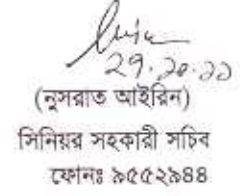 ২৭.১০.১১
(নুসরাত আইরিন)
সিনিয়র সহকারী সচিব
ফোনঃ ৯৫৫২৯৪৪